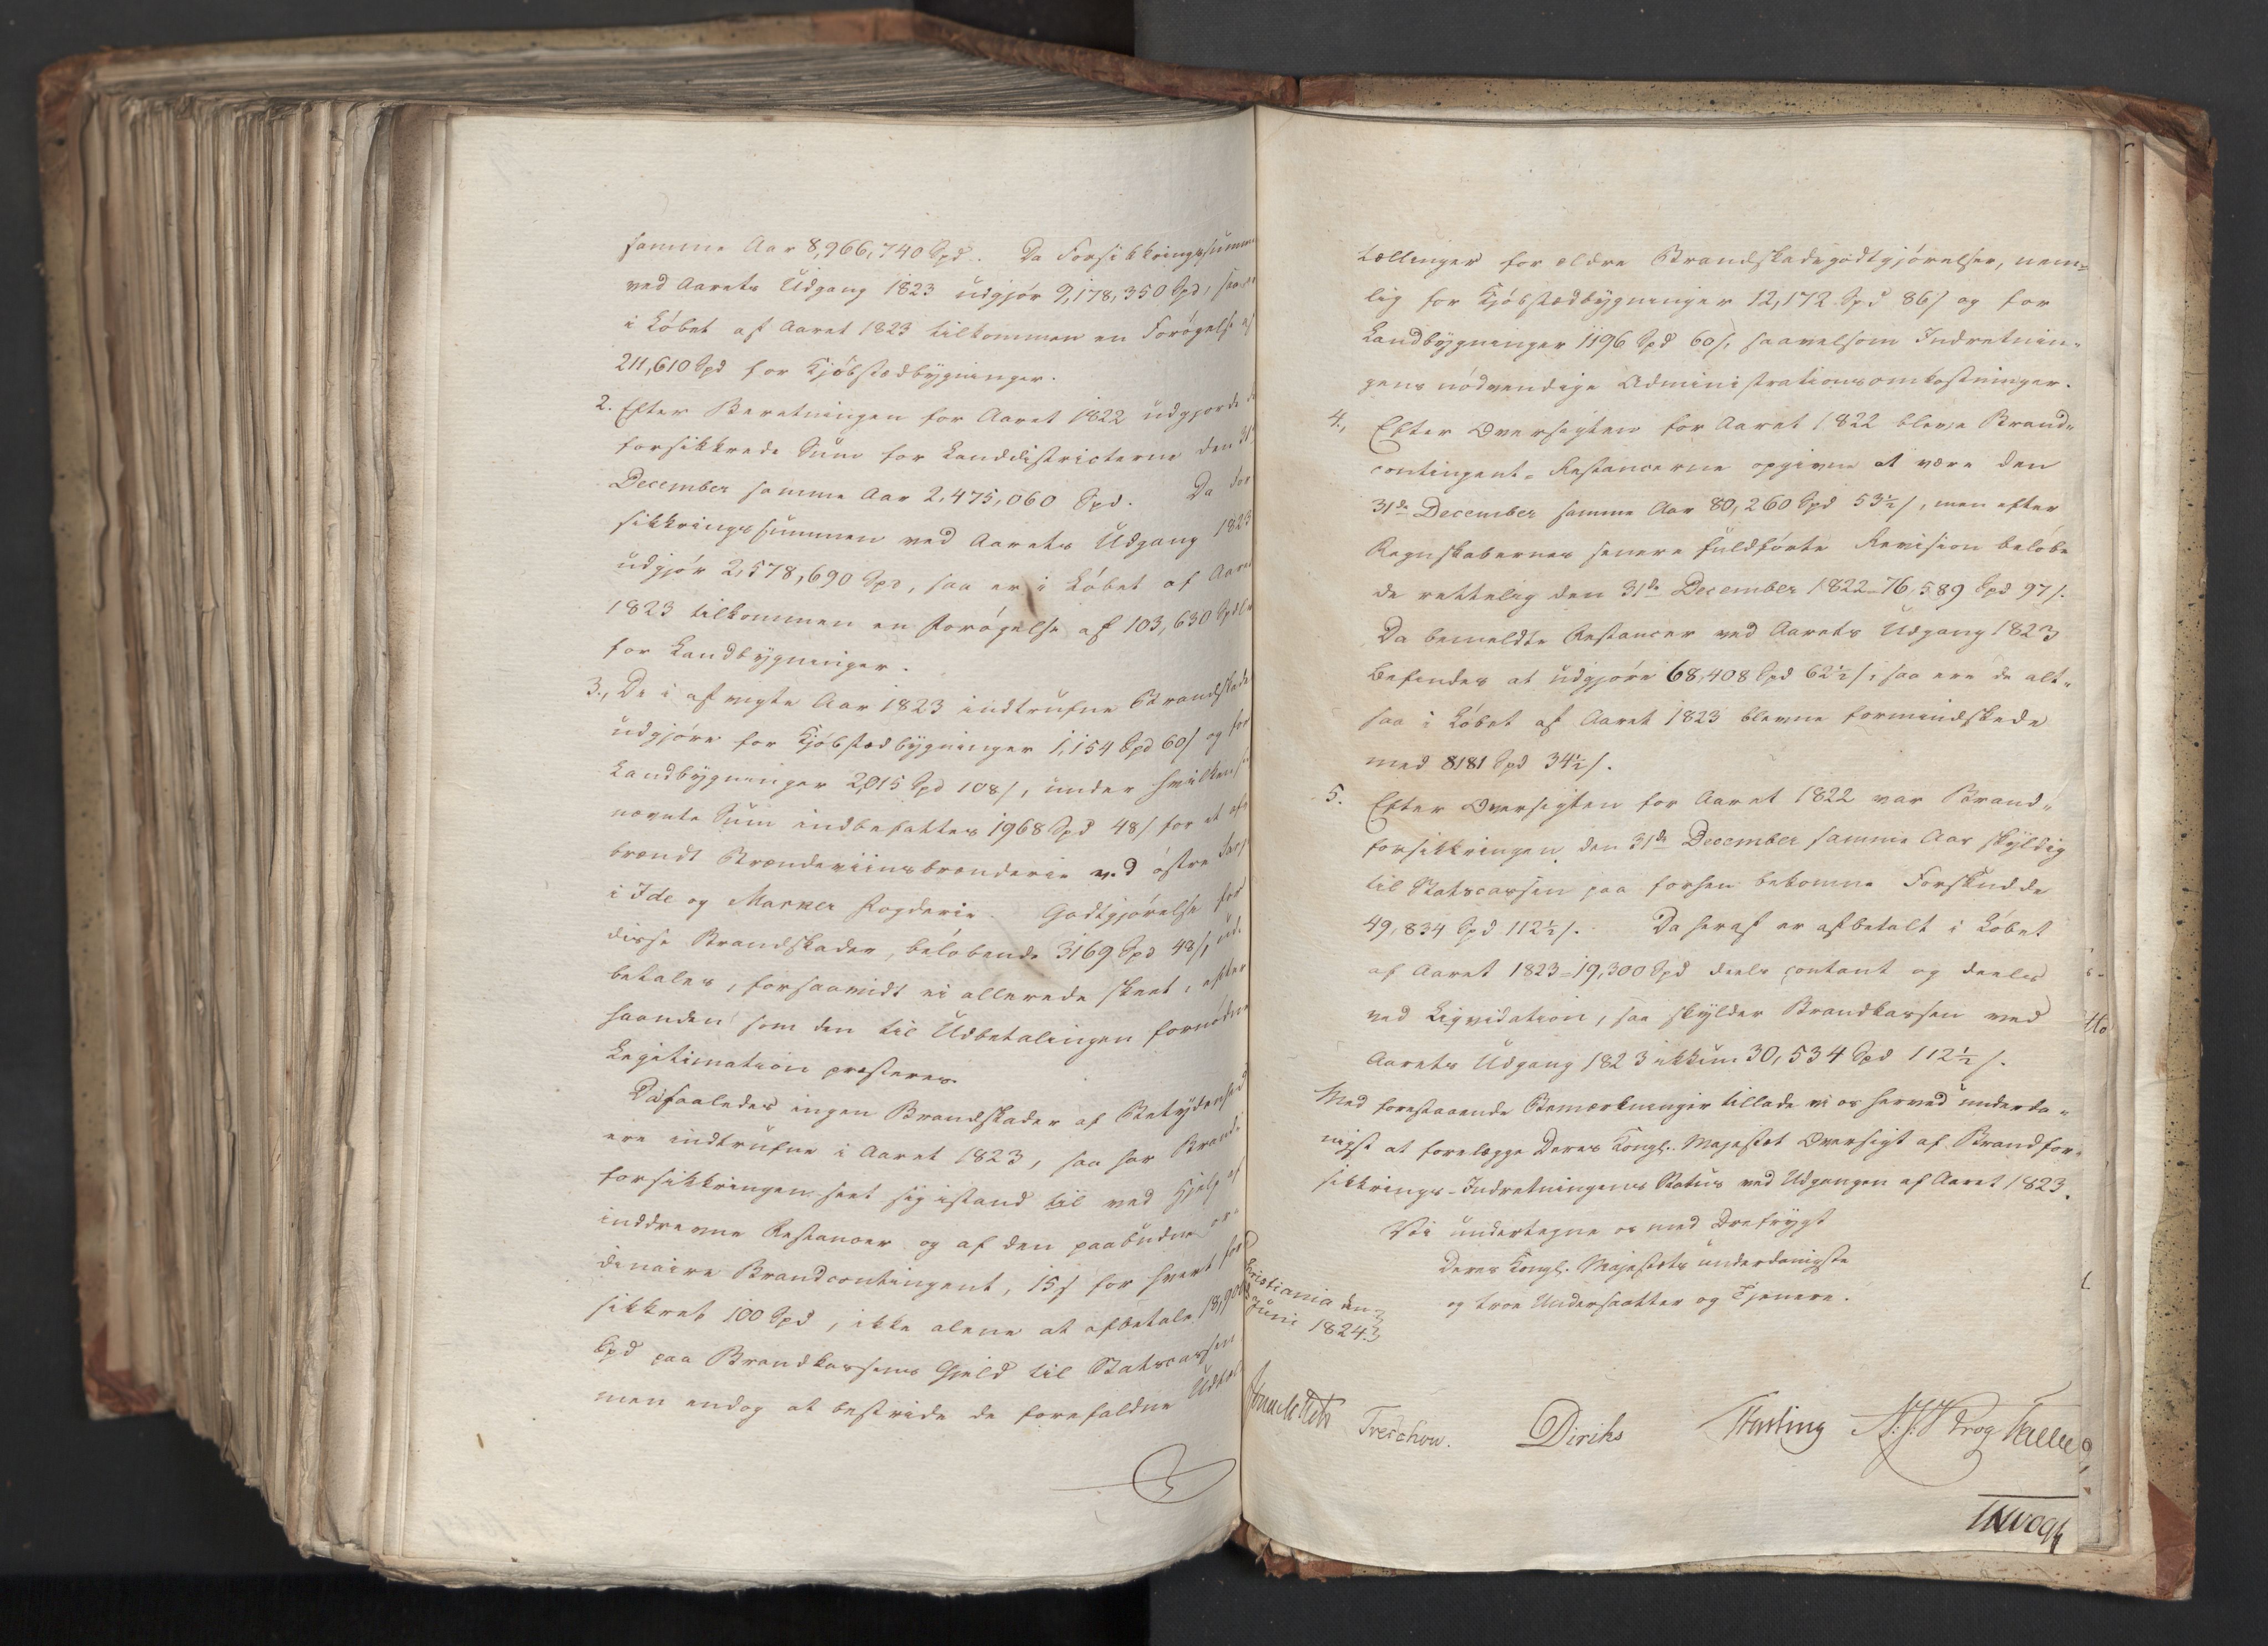 samme Aar 8,966,740 Spd. Da Forsikkringssumm
ved Aarets Udgang 1823 udgjør 9,178,350 Spd, saa
i Løbet af Aaret 1823 tilkommen en Forøgelse af
211,610 Spd for Kjøbstædbygninger.
2. Efter Beretningen for Aaret 1822 udgjorde
forsikkrede Sum for Landdistricterne den 31
December samme Aar 2,475,060 Spd. Da For
sikkringssummen ved Aarets Udgang 1823
udgjør 2,578,690 Spd, saa er i Løbet af Aaret
1823 tilkommen en Forøgelse af 103,630 Spd
for Landbygninger.
3., De i afvigte Aar 1823 indtrufne Brandskade
udgjøre for Kjøbstædbygninger 1,154 Spd 60 s og for
Landbygninger 2,015 Spd 108 s, under hvilken
nævnte Sum indbefattes 1968 Spd 48 s for et af
brændt Brændeviinsbrænderie ved østre
i Ide og Marker Fogderie. Godtgjørelse for
disse Brandskader, beløbende 3169 Spd 48 s, ud
betales, forsaavidt ei allerede skeet, efter
haanden som den til Udbetalingen fornødne
Legitimation præsteres.
Da saaledes ingen Brandskader af Betydenhed
ere indtrufne i Aaret 1823, saa har Brand
forsikkringen seet sig istand til ved Hjelp af
inddrevne Restancer og af den paabudne or
dinaire Brandcontingent, 15 s for hvert for
sikkret 100 Spd, ikke alene at afbetale 18,900
Spd paa Brandkassens Gjeld til Statscassen
men endog at bestride de forefaldne Udbe
tællinger for ældre Brandskadegodtgjørelser, nem=
lig for Kjøbstædbygninger 12,172 Spd 86 s og for
Landbygninger 1196 Spd 60 s, saavelsom Indretnin=
gens nødvendige Administrationsomkostninger.
4., Efter Oversigten for Aaret 1822 bleve Brand=
contingent-Restancerne opgivne at være den
31de December samme Aar 80,260 Spd 53½ s, men efter
Regnskabernes senere fuldførte Revision beløbe
de rettelig den 31de December 1822 - 76,589 Spd 97 s.
Da bemeldte Restancer ved Aarets Udgang 1823
befindes at udgjøre 68,408 Spd 62½ s, saa ere de alt=
saa i Løbet af Aaret 1823 blevne formindskede
med 8181 Spd 34½ s.
5. Efter Oversigten for Aaret 1822 var Brand=
forsikkringen den 31de December samme Aar skyldig
til Statscassen paa forhen bekomne Forskudde
49,834 Spd 112½ s. Da heraf er afbetalt i Løbet
af Aaret 1823 - 19,300 Spd deels contant og deels
ved Liqvidation, saa skylder Brandkassen ved
Aarets Udgang 1823 ikkun 30,534 Spd 112½ s.
Med forestaaende Bemærkninger tillade vi os herved underda=
nigst at forelægge Deres Kongl. Majestæt Oversigt af Brandfor=
sikkrings-Indretningens Status ved Udgangen af Aaret 1823.
Vi undertegne os med Ærefrygt
Deres Kongl. Majestæts underdanigste
og troe Undersaatter og Tjenere.
Christiania den
Juni 1824.
Jonas Collett Treschow. Diriks Fasting N: J: Krog